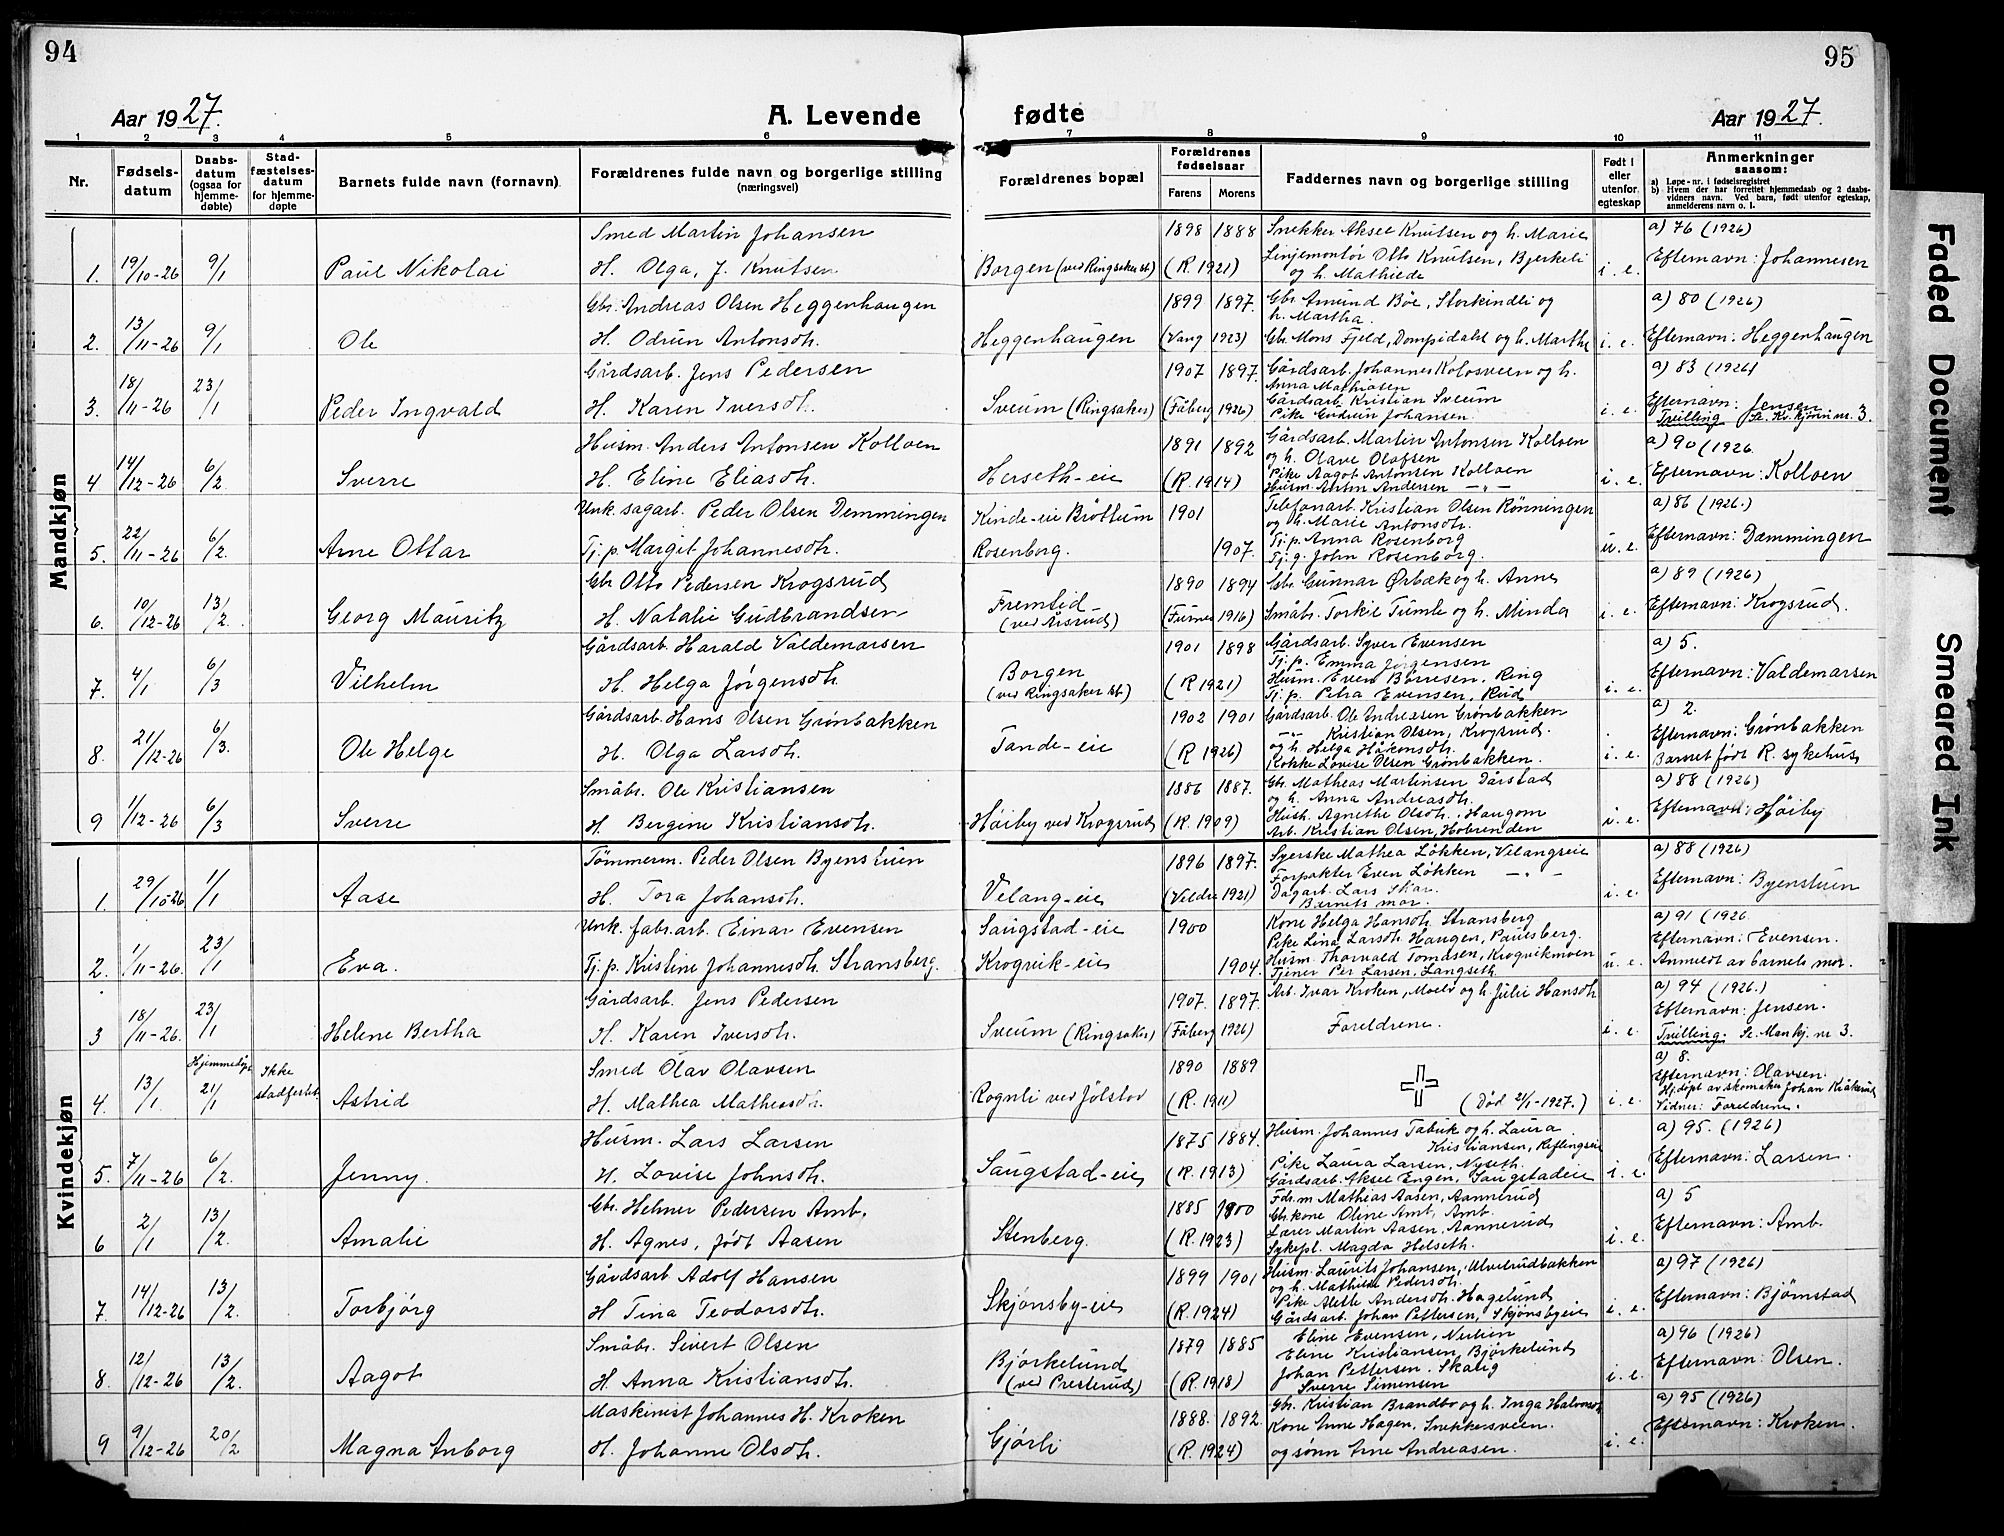 94
95
Aar 1927.
A. Levende
fødte
Aar 1927.
1 2 3 4 5 6 7 8 9 10 11
Nr.
Fødsels-
datum
Daabs-
datum
(ogsaa for
hjemme-
døbte)
Stad-
fæstelses-
datum
for hjemme-
døpte
Barnets fulde navn (fornavn)
Forældrenes fulde navn og borgerlige stilling
(næringsvei)
Forældrenes bopæl
Forældrenes
fødselsaar
Farens Morens
Faddernes navn og borgerlige stilling
Født i
eller
utenfor
egteskap
Anmerkninger
saasom:
a) Løpe-nr. i fødselsregistret
b) Hvem der har forrettet hjemmedaab og 2 daabs-
vidners navn. Ved barn, født utenfor egteskap,
anmelderens navn o. l.
Mandkjøn
Smed Martin Johansen 1898 1888 Snekker Aksel Knutsen og h. Marie a) 76 (1926)
1. 19/10-26 9/1 Paul Nikolai H. Olga, J. Knutsen Borgen (ved Ringsaker st) (R. 1921) Linjemontør Otto Knutsen, Bjerkeli i. e. Efternavn: Johannesen
og h. Mathilde
Gbr. Andreas Olsen Heggenhaugen 1899 1897. Gbr Amund Bøe, Storkindli og a) 80 (1926)
h. Martha.
2. 13/11-26 9/1 Ole H. Odrun Antonsdh. Heggenhaugen (Vang 1923) Gb. Mons Fjeld, Dompidalst og h. Marthe i. e. Efternavn: Heggenhaugen
Gårdsarb. Jens Pedersen 1907 1897. Gårdsarb. Johannes Kolosveen og h. a) 83 (1926)
Anna Mathiasen
3. 18/11-26 23/1 Peder Ingvald H. Karen Iversdh. Sveum (Ringsaker) (Fåberg 1926) Gårdsarb. Kristian Sveum i. e. Efternavn: Jensen
Pike Gudrun Johansen. Tvilling Se. Kv. kjønn nr. 3.
Husm. Anders Antonsen Kolloen 1891 1892 Gårdsarb. Martin Antonsen Kolloen a) 90 (1926.
og h. Olave Olafsen
4 14/12-26 6/2 Sverre H. Eline Eliasdh. Herseth-eie (R. 1914) Pike Aagot Antonsen Kolloen i. e. Efternavn: Kolloen
Husm. Anton Andersen -"-
Unk. sagarb. Peder Olsen Demmingen Kinde-eie Brøttum 1901 Telefonarb. Kristian Olsen Rønningen a) 86 (1926.)
og h. Marie Antonsdh.
5. 22/11-26 6/2. Arne Ottar Tj. p. Margit Johannesdh. Rosenborg. 1907. Tj. p. Anna Rosenborg u. e. Efternavn: Dæmmingen
Tj. g. John Rosenborg.
Gbr Otto Pedersen Krogsrud 1890 1894 Gbr. Gunnar Ørbæk og h. Anne a) 89 (1926)
6. 10/12-26 13/2. Georg Mauritz H. Natalie Gudbrandsen Fremtid (Furnes 1916) Småbr. Torkil Tumle og h. Minda i. e. Efternavn: Krogsrud.
(ved Årsrud)
Gårdsarb. Harald Valdemarsen 1901 1898 Gårdsarb. Syver Evensen a) 5.
Tj. p. Emma Jørgensen
7. 4/1 6/3 Vilhelm H. Helga Jørgensdh. Borgen (R 1921) Husm. Even Børresen, Ring i. e. Efternavn: Valdemarsen
(ved Ringsaker st) Tj. p. Petra Evensen, Rud
Gårdsarb. Hans Olsen Grønbakken 1902 1901 Gårdsarb. Ole Andreasen Grønbakken a) 2.
-"- Kristian Olsen, Krogsrud. Efternavn: Grønbakken
8. 21/12-26 6/3. Ole Helge H. Olga Larsdh. Tande-eie (R 1926) og h. Helga Håkonsdh. i. e. Barnet født R. sykehus
Kokke Lovise Olsen Grønbakken.
Småbr. Ole Kristiansen 1886 1887. Gbr. Matheas Martinsen Dårstad a) 88 (1926)
og h. Anna Andreasdh.
9 1/12-26 6/3 Sverre H. Bergine Kristiansdh. Høiby ved Krogsrud (R. 1909) Hush. Agnethe Olsdh., Haugom i. e. Efternavn: Høiby
Arb. Kristian Olsen, Hobrenden
Kvindekjøn
Tømmerm. Peder Olsen Byenstuen 1896 1897. Syerske Mathea Løkken, Velangseie a) 88 (1926)
Forpakter Even Løkken -"-
1. 29/10-26 1/1 Aase H. Tora Johansdh. Velang-eie (Veldre 1921) Dagarb. Lars Skar. i. e. Efternavn: Byenstuen
Barnets mor.
Unk. fabr. arb. Einar Evensen Saugstad-eie 1900 Kone Helga Hansdh. Stransberg a) 91 (1926.
Pike Lina Larsdh. Haugen, Paulsberg. Efternavn: Evensen.
2. 1/11-26. 23/1 Eva. Tj. p. Kristine Johannesdh. Stransberg. Krogvik-eie 1904. Husm. Thorvald Tomasen, Krogvikmoen u. e. Anmeldt av barnets mor.
Tjener Per Larsen, Langseth
Gårdsarb. Jens Pedersen 1907. 1897. Arb. Ivar Kroken, Moelv og h. Julie Hansdh a) 94 (1926.)
Efternavn: Jensen.
3 18/11-26. 23/1 Helene Bertha H. Karen Iversdh. Sveum (Ringsaker) (Fåberg 1926) Foreldrene. i. e. Tvilling. Se. Mankj. nr 3.
Hjemmedøpt Ikke Smed Olav Olavsen 1890 1889 a) 8.
stadfestet Efternavn: Olavsen.
4 13/1 21/1 Astrid H. Mathea Matheasdh. Rognli ved Jølstad (R. 1911) (Død 21/1-1927.) i. e. Hj. døpt av skomaker Johan Kråkerud
Vidner: Foreldrene.
Husm. Lars Larsen 1875 1884. Husm. Johannes Tabuk og h. Laura a) 95. (1926)
Kristiansen, Kiflingseie
5. 7/11-26 6/2. Jenny. H. Lovise Johnsdh. Saugstad-eie (R. 1913) Pike Laura Larsen, Nyseth. i. e. Efternavn: Larsen.
Gårdsarb. Aksel Engen, Saugstadeie
Gbr. Helmer Pedersen Amb. 1885 1900 Fdr. m Mathias Aasen, Aannerud a) 5
Gbr. kone Oline Amt, Amb.
6 2/1 13/2. Amalie H. Agnes, født Aasen Stenberg. (R. 1923) Lærer Martin Aasen, Aannerud i. e. Efternavn: Amb.
Sykepl. Magda Helseth.
Gårdsarb Adolf Hansen 1899 1901 Husm. Laurits Johansen, Ulvelrudbakken a) 97 (1926)
og h. Mathilde Pedersdh.
7. 14/12-26 13/2. Torbjørg H Tina Teodorsdh. Skjønsby-eie (R. 1924) Pike Alette Andersdh. Hagelund i. e. Efternavn: Bjørnstad
Gårdsarb. Johan Pettersen, Skjønsbyeie
Småbr. Sivert Olsen 1879 1885 Eline Evensen, Nerlien a) 96 (1926)
Eline Kristiansen, Bjørkelund
8. 12/12-26 13/2. Aagot H. Anna Kristiansdh. Bjørkelund (R. 1918) Johan Pettersen. Skaug i. e. Efternavn: Olsen.
(ved Presterud) Sverre Simensen
Maskinist Johannes H. Kroken 1888. 1892. Gb. Kristian Brandbo og h. Inga Halvorsdh a) 95 (1926)
Kone Anne Hagen, Snekkersveen. Efternavn: Kroken.
9 9/12-26 20/2 Magna Anborg H. Johanne Olsdh. Gjørli (R. 1924) og sønn Arne Andreasen. i. e.
Faded Document
Smeared Ink